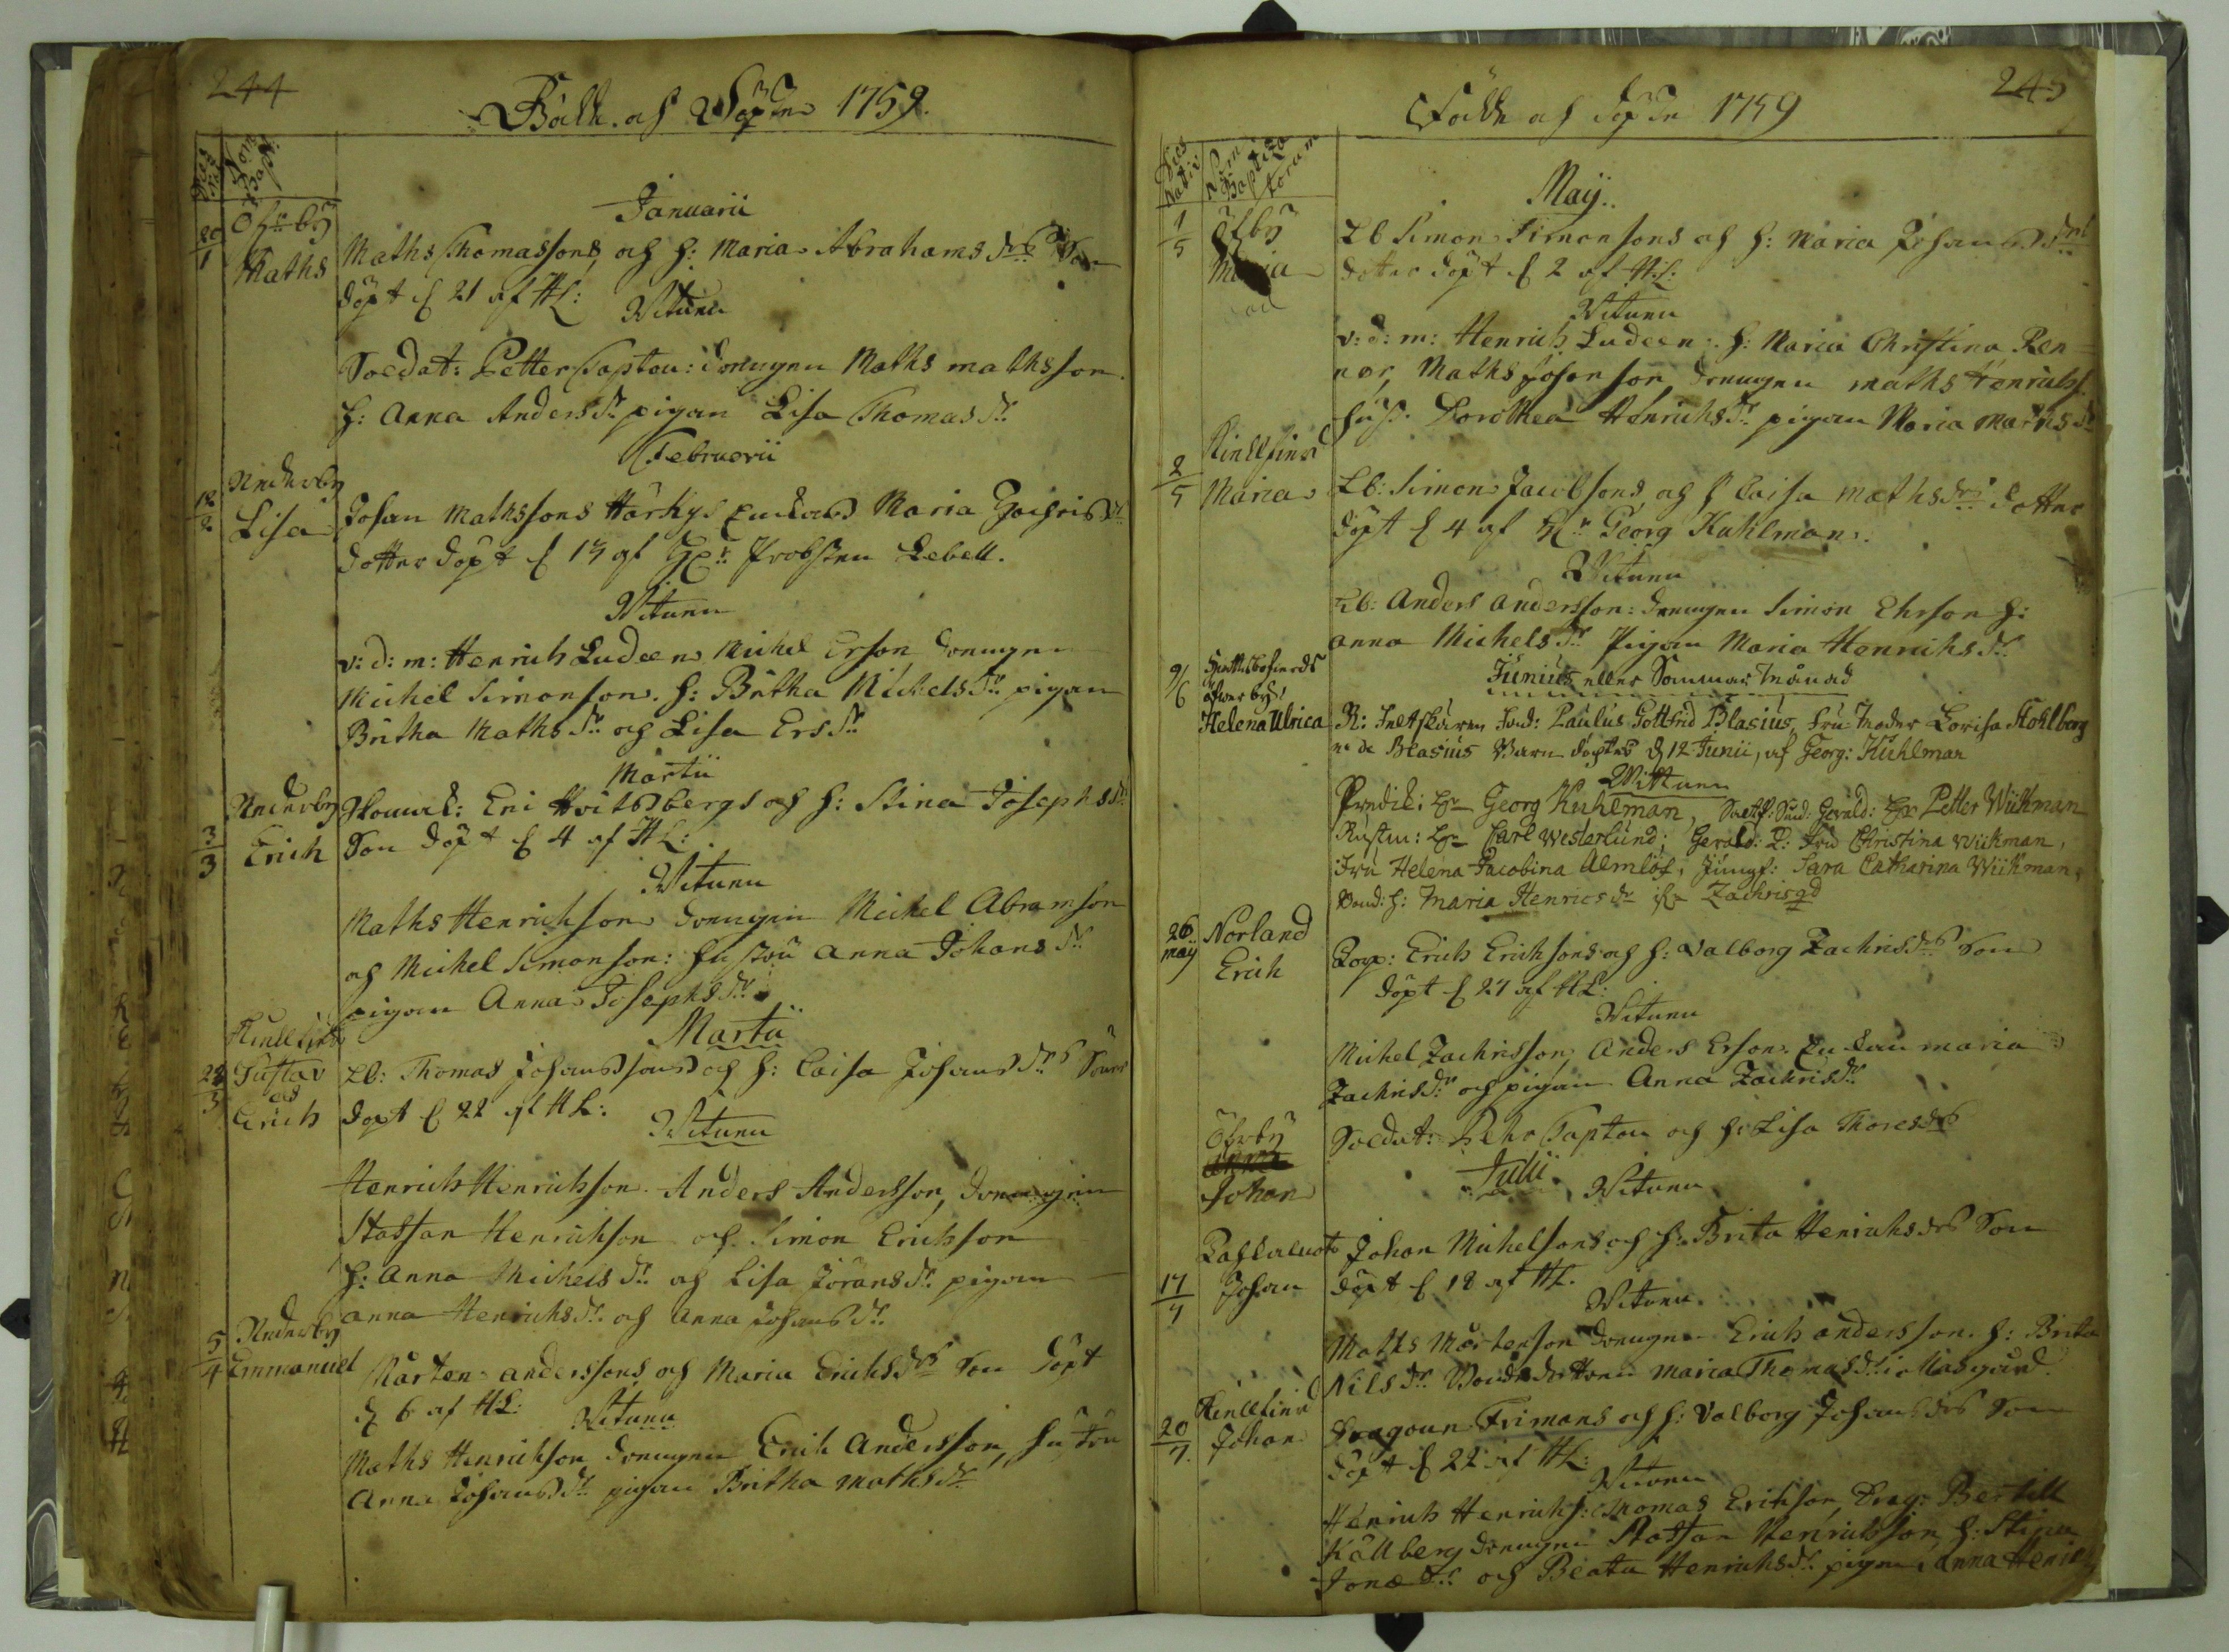 244
Födde och Döpte 1759.
Dies Nat.
Nom. Bapt.
Januarii
20/1
Öfwerby
Maths
Maths Thomassons, och h: Maria Abrahams drs Son
döpt d 21 af HL:
Witnen
Soldat: Petter Tapton: drengen Maths mathsson.
h: Anna Anders dr pigan Lisa Thomas dr
Februarii
12/2
Nederby
Lisa
Johan Mathssons Härkys Enckas Maria Zachris dr
dotter döpt d 13 af Hr Probsten Lebell.
Witnen
v: d: m: Henrich Ludeen Michel Erson drengen
Michel Simonson. h: Britha Michels dr pigan
Britha Maths dr och Lisa Ers dr
Martii
3/3
Nederby
Erich
Eric Hvitsbergs och h: Stina Josephs dr
Son döpt d 4 af HL:
Witnen
Maths Henrichson drengen Michel Abramson
och Michel Simonson: hustru Anna Johans dr
pigan Anna Josephs dr
Martii
Gustav
och
Erich
Lb: Thomas Johanssons och h: Caisa Johans drs Söner
döpt d 22 af HL:
Witnen
Henrich Henrichson. Anders Andersson, drengen
Staffan Henrichson och Simon Erichson
h: Anna Michels dr och Lisa Jörans dr pigan
anna Henrichs dr och Anna Johans dr
5/4
Nederby
Emmanuel
Mårten anderssons och Maria Erichs drs Son döpt
d 6 af HL:
Witnen
Maths Henrichson drengen Erich Andersson, hustru
Anna Johans dr pigan Britha maths dr
245
Födde och Döpte 1759
Dies Nativi
Nom. Baptizatorum
May..
1/5
Öfby
Maria
Lb Simon Simonsons och h: Maria Johans drs
dotter döpt d 2 af HL:
Witnen
v: d: m: Henrich Ludeen. h: Maria Christina Ren-
ner, Maths Johanson, drengen maths Henrichs.
hust. Dorothea Henrichs dr pigan Maria Maths dr
2/5
Maria
Lb: Simon Jacobsons och h Caisa Maths drs dotter
döpt d 4 af Hr Georg Kuhlman.
Witnen
Lb: Anders Andersson: drengen Simon Ehrson h:
anna Michels dr Pigan Maria Henrichs dr
Junius eller Sommar Månad
9/6
öfwerby
Helena Ulrica
R: Feltskären Paulus Gottfrid Blasius, fru Moder Lovisa Stohlberg
Blasius Barn döptes d 12 Junii, af Georg: Kuhlman
Wittnen
Georg Kuhlman, Petter Wiikman
Carl Westerlund; Fru Christina Wiikman,
Fru Helena Jacobina Almlöf, Jungf: Sara Catharina Wiikman,
h: Maria Henrics dr Zachrisgd
26 may
Norland
Erich
Erich Erichsons och h: Valborg Zachris drs Son
döpt d 27 af HL:
Witnen
Michel Zachrisson, Anders Erson. Enckan maria
Zachris dr och pigan Anna Zachris dr
Öfwerby
Johan
Soldat: Pehr Tapton och h: Lisa Thores drs
Julii
Witnen
17/7
Johan
Johan Michelsons och h: Brita Henrichs drs Son
döpt d 18 af HL.
Witnen
Maths Mårtenson drengen Erich andersson. h: Brita
Nils dr Bondedottren Maria Thomas dr i Nasgård.
20/7
Johan
Dragoun Frimans och h: Valborg Johans drs Son
döpt d 22 af HL:
Witnen
Henrich Henrichs: Thomas Erikson, Drag: Bertill
Källberg drengen Staffan Henrichsson, h: Stina
Jonæ dr och Beata Henrichs dr pigan Anna Henrich